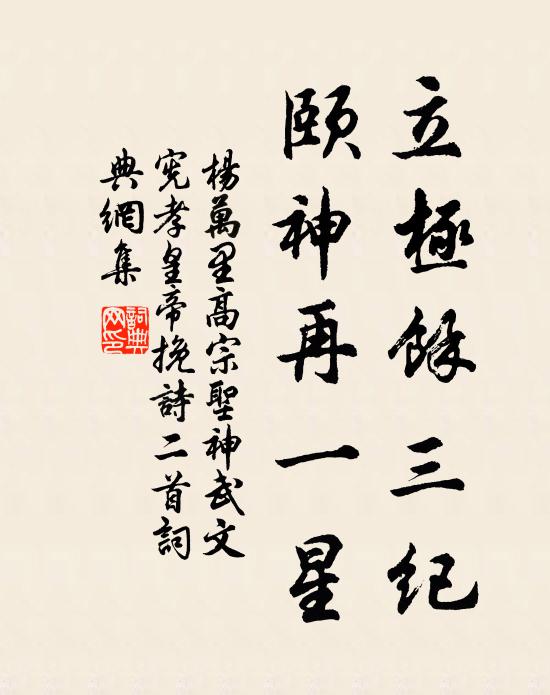 立極餘三紀
頤神再一星
楊萬里高宗聖神武文
憲孝皇帝挽詩二首詞
典網集
詞典網印